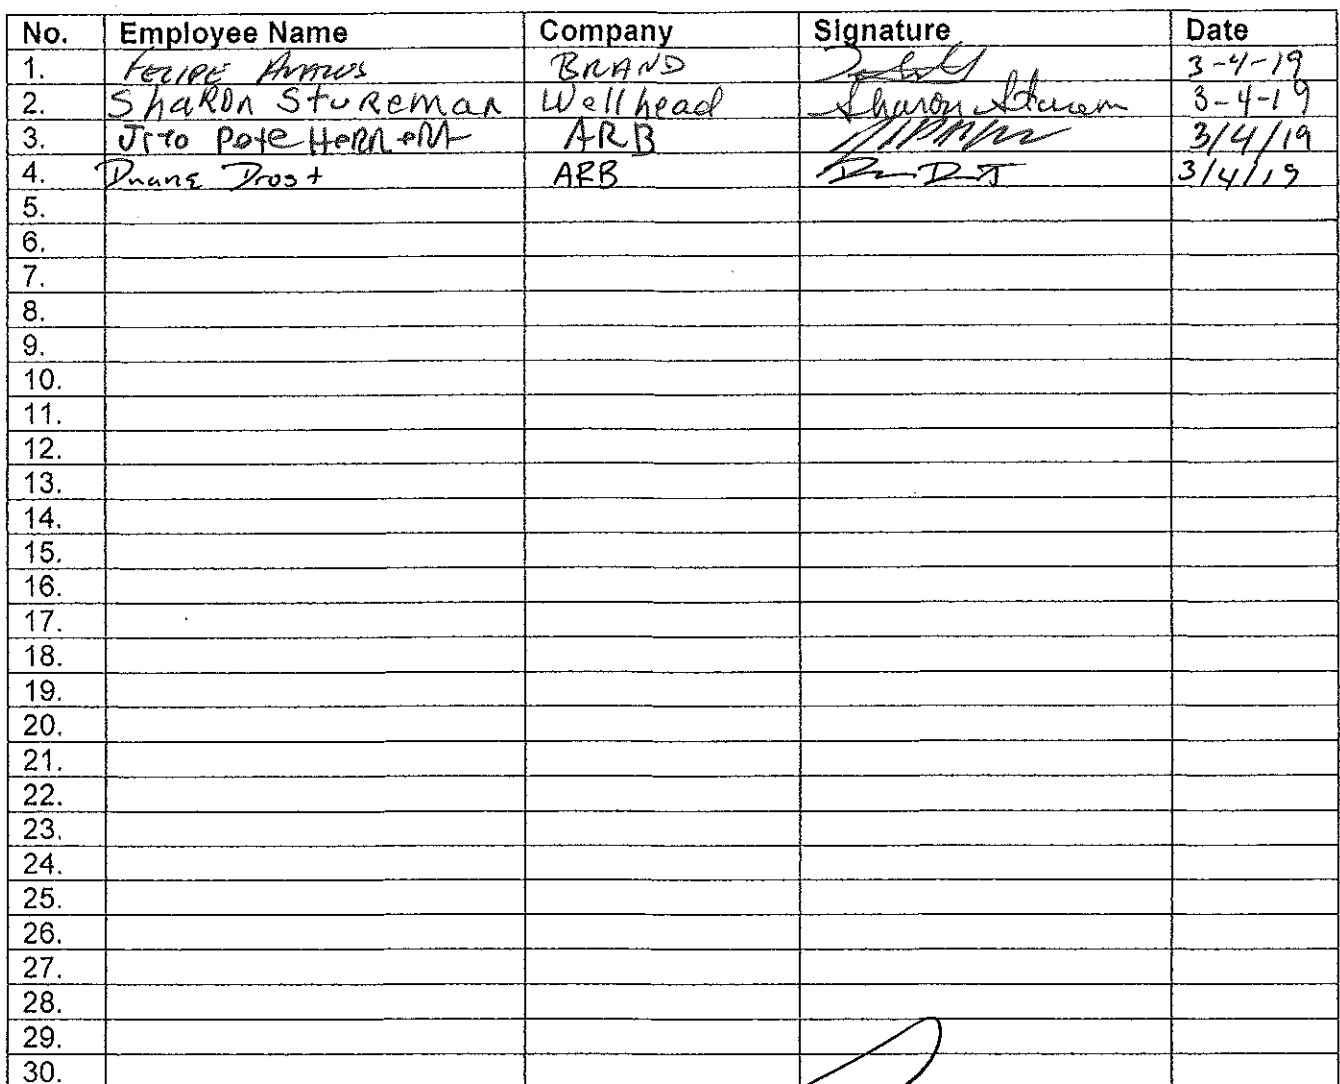 No. Employee Name Company Signature Date
1. FELIPE AVALOS BRAND 3-4-19
2. ShaRon StuReman Wellhead Sharon Sturem 3-4-19
3. ARB 3/4/19
4. Duane Drost ARB 3/4/19
5.
6.
7.
8.
9.
10.
11.
12.
13.
14.
15.
16.
17.
18.
19.
20.
21.
22.
23.
24.
25.
26.
27.
28.
29.
30.